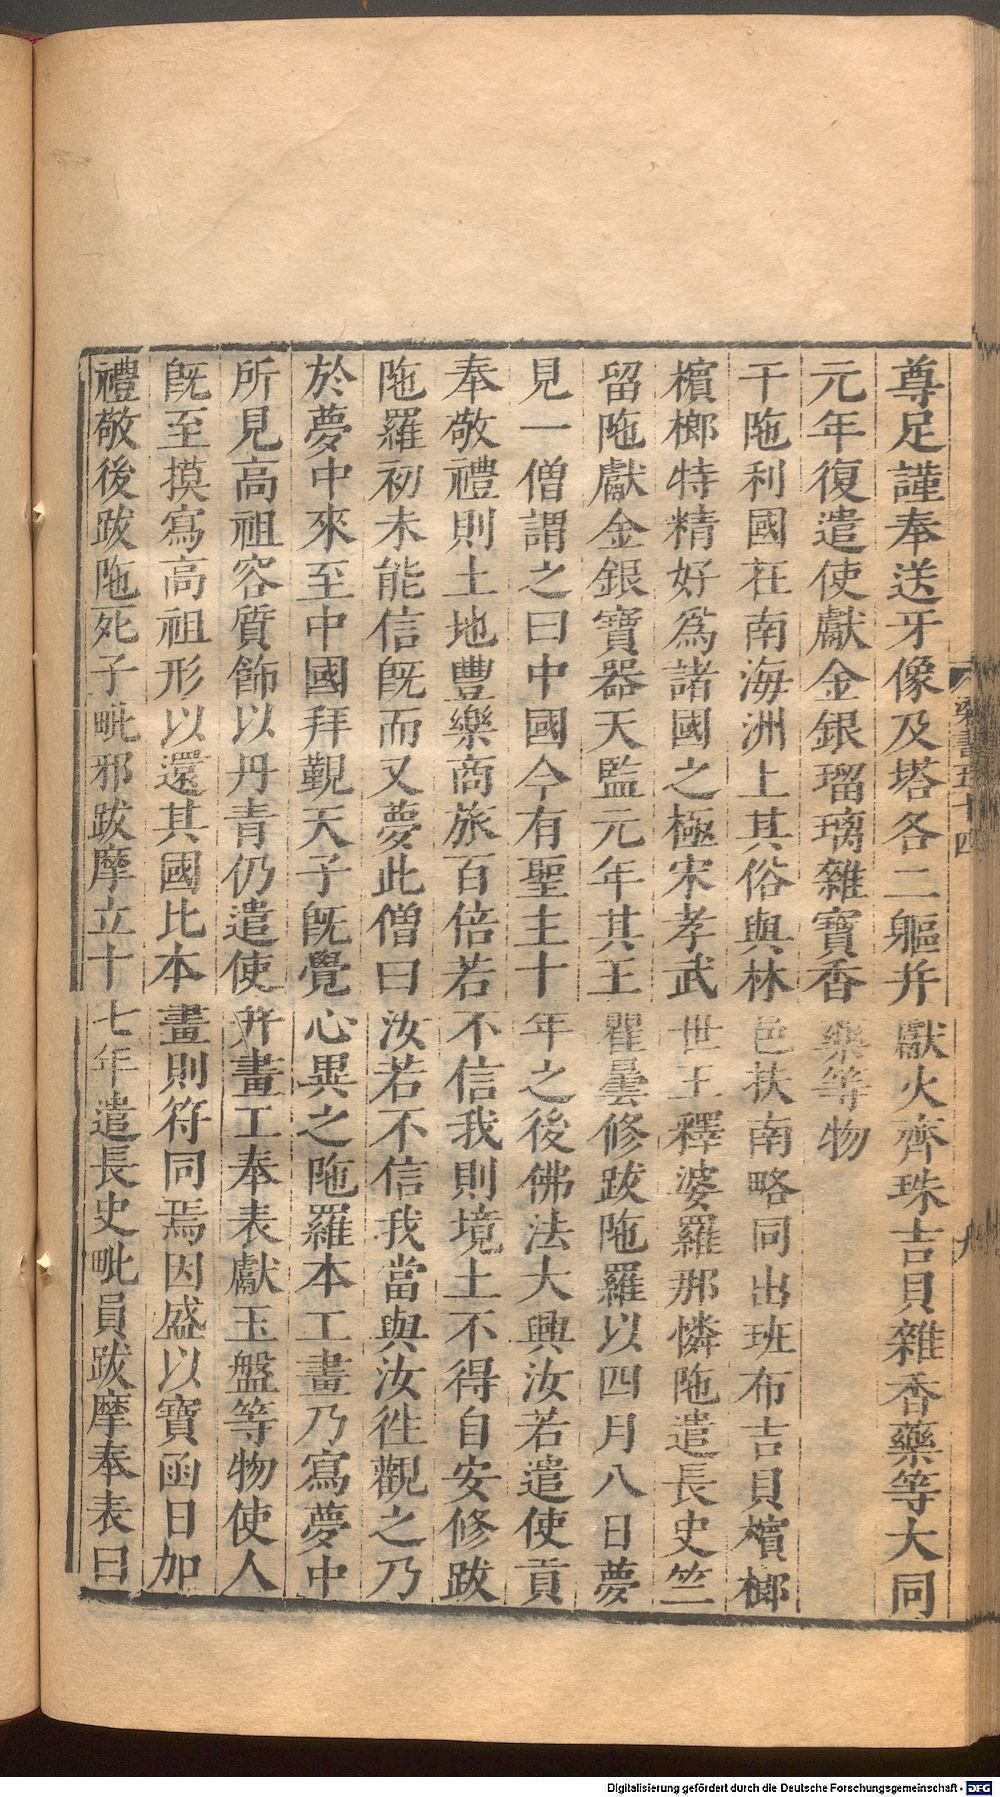 尊足謹奉送牙像及塔各二軀幷獻火齊珠吉貝雜香藥等大同
元年復遣使獻金銀瑠璃雜寶香藥等物
干陁利國在南海洲上其俗與林邑扶南略同出班布吉貝檳榔
檳榔特精好爲諸國之極宋孝武世王釋婆羅那憐陁遣長史竺
留陁獻金銀寶器天監元年其王瞿曇修跋陁羅以四月八日夢
見一僧謂之曰中國今有聖主十年之後佛法大興汝若遣使貢
奉敬禮則土地豐樂商旅百倍若不信我則境土不得自安修跋
陁羅初未能信旣而又夢此僧曰汝若不信我當與汝徃觀之乃
於夢中來至中國拜覲天子旣覺心異之陁羅本工畫乃寫夢中
所見高祖容質飾以丹青仍遣使幷畫工奉表獻玉盤等物使人
旣至摸寫高祖形以還其國比本畫則符同焉因盛以寶函日加
禮敬後跋陁死子毗邪跋摩立十七年遣長史毗員跋摩奉表曰
梁書五十四
九
Digitalisierung gefördert durch die Deutsche Forschungsgemeinschaft - DFG